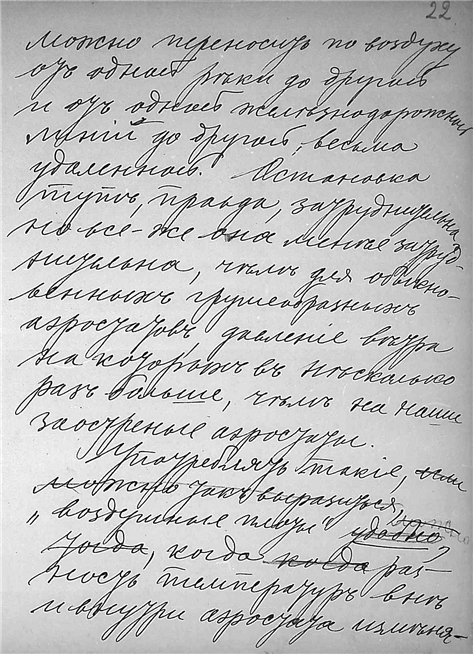 22
можно переносить по воздуху
отъ одной рѣки до другой
и отъ одной желѣзнодорожной
линіи до другой, весьма
удаленной. Остановка
тутъ, правда, затруднительна
но все-же она менѣе затруд-
нительна, чѣмъ для обыкно-
венныхъ грушеобразныхъ
аэростатовъ, давленіе вѣтра
на которыхъ въ нѣсколько
разъ больше, чѣмъ на наши
заостреные аэростаты.
Употреблять такіе, если
можно такъ выразиться,
„воздушные плоты" удобно
тогда, когда когда раз-
ность температуръ внѣ
и внутри аэростата измѣня-